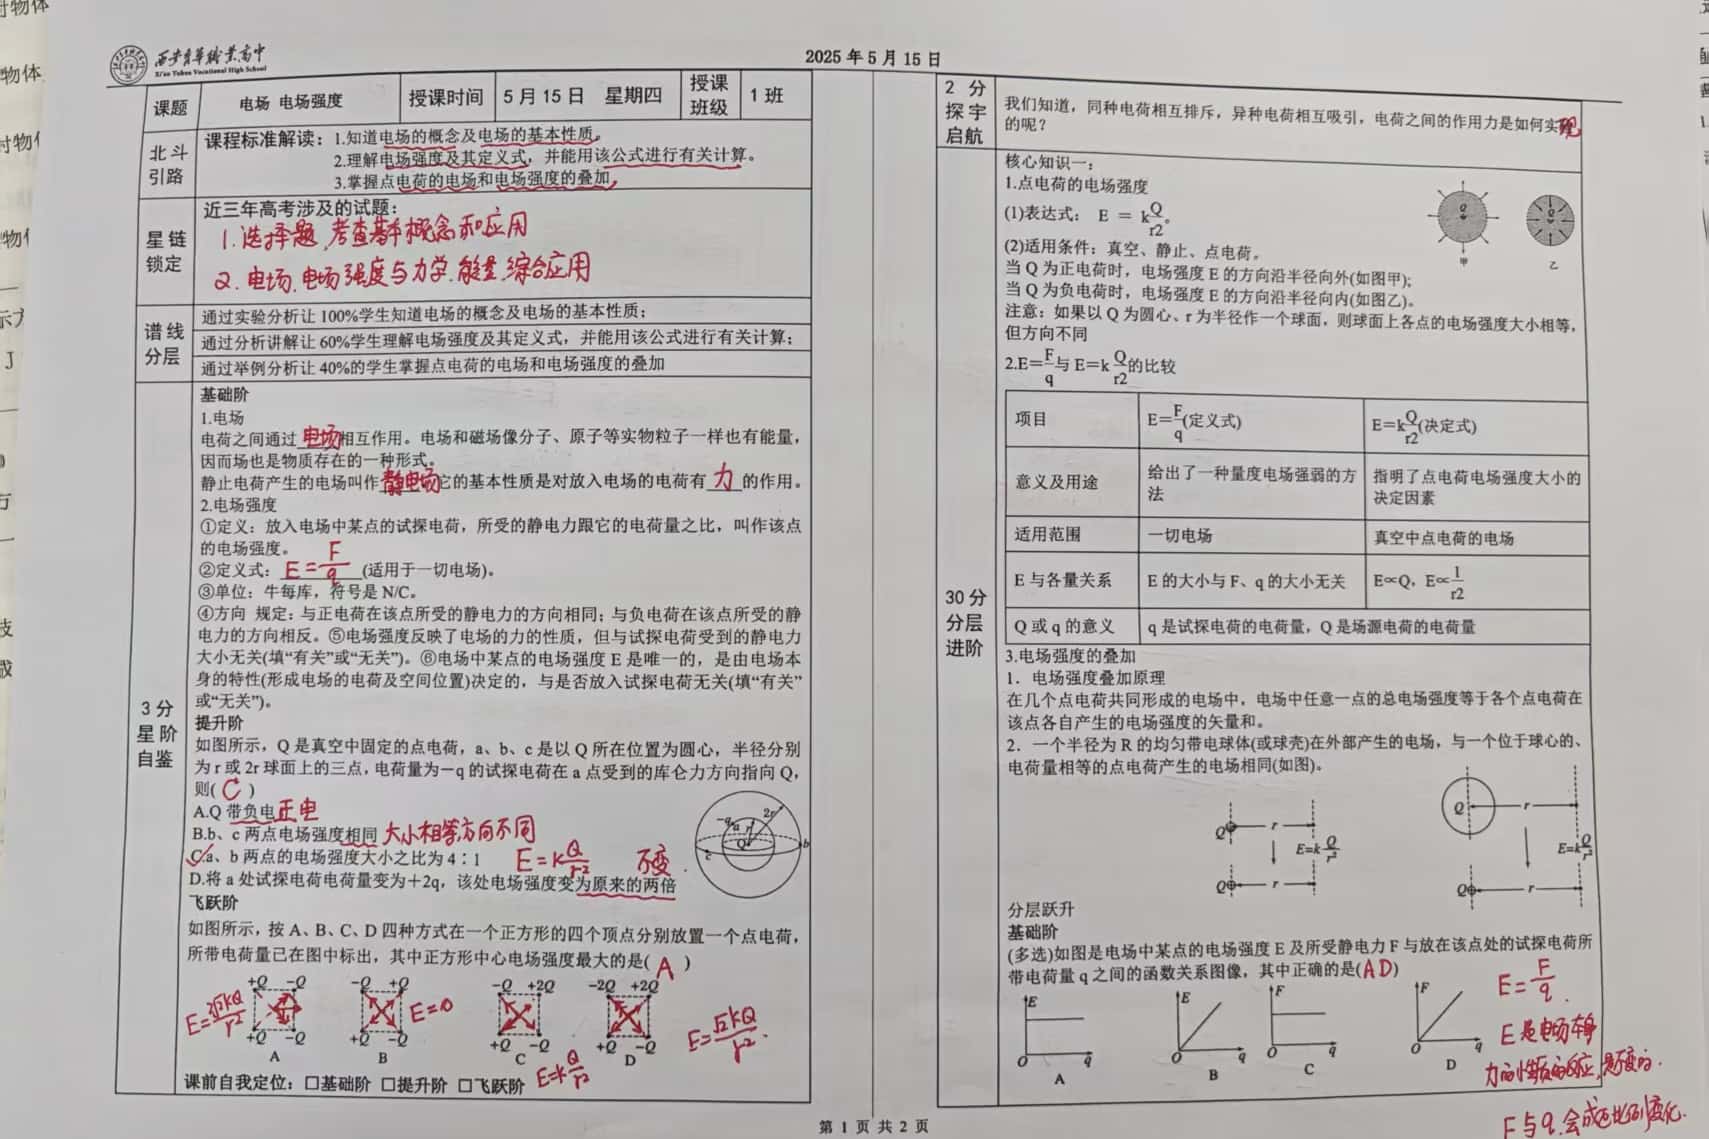 西安育华职业高中
Xi'an Yuhua Vocational High School
2025年5月15日
课题 电场 电场强度 授课时间 5月15日 星期四 授课班级 1班
北斗引路
课程标准解读：1.知道电场的概念及电场的基本性质。
2.理解电场强度及其定义式，并能用该公式进行有关计算。
3.掌握点电荷的电场和电场强度的叠加。
星链锁定
近三年高考涉及的试题：
1.选择题，考查基本概念和应用
2.电场、电场强度与力学、能量综合应用
谱线分层
通过实验分析让100%学生知道电场的概念及电场的基本性质；
通过分析讲解让60%学生理解电场强度及其定义式，并能用该公式进行有关计算；
通过举例分析让40%的学生掌握点电荷的电场和电场强度的叠加
3分
星阶
自鉴
基础阶
1.电场
电荷之间通过电场相互作用。电场和磁场像分子、原子等实物粒子一样也有能量，
因而场也是物质存在的一种形式。
静止电荷产生的电场叫作静电场它的基本性质是对放入电场的电荷有力的作用。
2.电场强度
①定义：放入电场中某点的试探电荷，所受的静电力跟它的电荷量之比，叫作该点
的电场强度。
②定义式：E=F/q(适用于一切电场)。
③单位：牛每库，符号是N/C。
④方向 规定：与正电荷在该点所受的静电力的方向相同；与负电荷在该点所受的静
电力的方向相反。⑤电场强度反映了电场的力的性质，但与试探电荷受到的静电力
大小无关(填“有关”或“无关”)。⑥电场中某点的电场强度E是唯一的，是由电场本
身的特性(形成电场的电荷及空间位置)决定的，与是否放入试探电荷无关(填“有关”
或“无关”)。
提升阶
如图所示，Q是真空中固定的点电荷，a、b、c是以Q所在位置为圆心，半径分别
为r或2r球面上的三点，电荷量为－q的试探电荷在a点受到的库仑力方向指向Q，
则( C )
A.Q带负电 正电
B.b、c两点电场强度相同 大小相等方向不同
C.a、b两点的电场强度大小之比为4∶1 E=kQ/r² 不变
D.将a处试探电荷电荷量变为＋2q，该处电场强度变为原来的两倍
-q a r 2r Q c b
飞跃阶
如图所示，按A、B、C、D四种方式在一个正方形的四个顶点分别放置一个点电荷，
所带电荷量已在图中标出，其中正方形中心电场强度最大的是( A )
+Q -Q -Q +Q -Q +2Q -2Q +2Q
E=2√2kQ/r² E=0 E=√2kQ/r²
+Q -Q +Q -Q +Q -Q +Q -Q
A B C D
E=kQ/r²
课前自我定位：□基础阶 □提升阶 □飞跃阶
2分
探宇
启航
我们知道，同种电荷相互排斥，异种电荷相互吸引，电荷之间的作用力是如何实现
的呢？
30分
分层
进阶
核心知识一：
1.点电荷的电场强度
(1)表达式：E＝kQ/r2。
(2)适用条件：真空、静止、点电荷。
当Q为正电荷时，电场强度E的方向沿半径向外(如图甲)；
当Q为负电荷时，电场强度E的方向沿半径向内(如图乙)。
Q Q
甲 乙
注意：如果以Q为圆心、r为半径作一个球面，则球面上各点的电场强度大小相等，
但方向不同
2.E=F/q与E=kQ/r2的比较
项目 E=F/q(定义式) E=kQ/r2(决定式)
意义及用途 给出了一种量度电场强弱的方法 指明了点电荷电场强度大小的决定因素
适用范围 一切电场 真空中点电荷的电场
E与各量关系 E的大小与F、q的大小无关 E∝Q，E∝1/r2
Q或q的意义 q是试探电荷的电荷量，Q是场源电荷的电荷量
3.电场强度的叠加
1．电场强度叠加原理
在几个点电荷共同形成的电场中，电场中任意一点的总电场强度等于各个点电荷在
该点各自产生的电场强度的矢量和。
2．一个半径为R的均匀带电球体(或球壳)在外部产生的电场，与一个位于球心的、
电荷量相等的点电荷产生的电场相同(如图)。
Q r Q r
E=kQ/r² E=kQ/r²
Q r Q r
分层跃升
基础阶
(多选)如图是电场中某点的电场强度E及所受静电力F与放在该点处的试探电荷所
带电荷量q之间的函数关系图像，其中正确的是(AD)
E E F F
O q O q O q O q
A B C D
E=F/q.
E是电场本身
力的性质的反应，是不变的.
F与q会成正比例变化.
第1页共2页